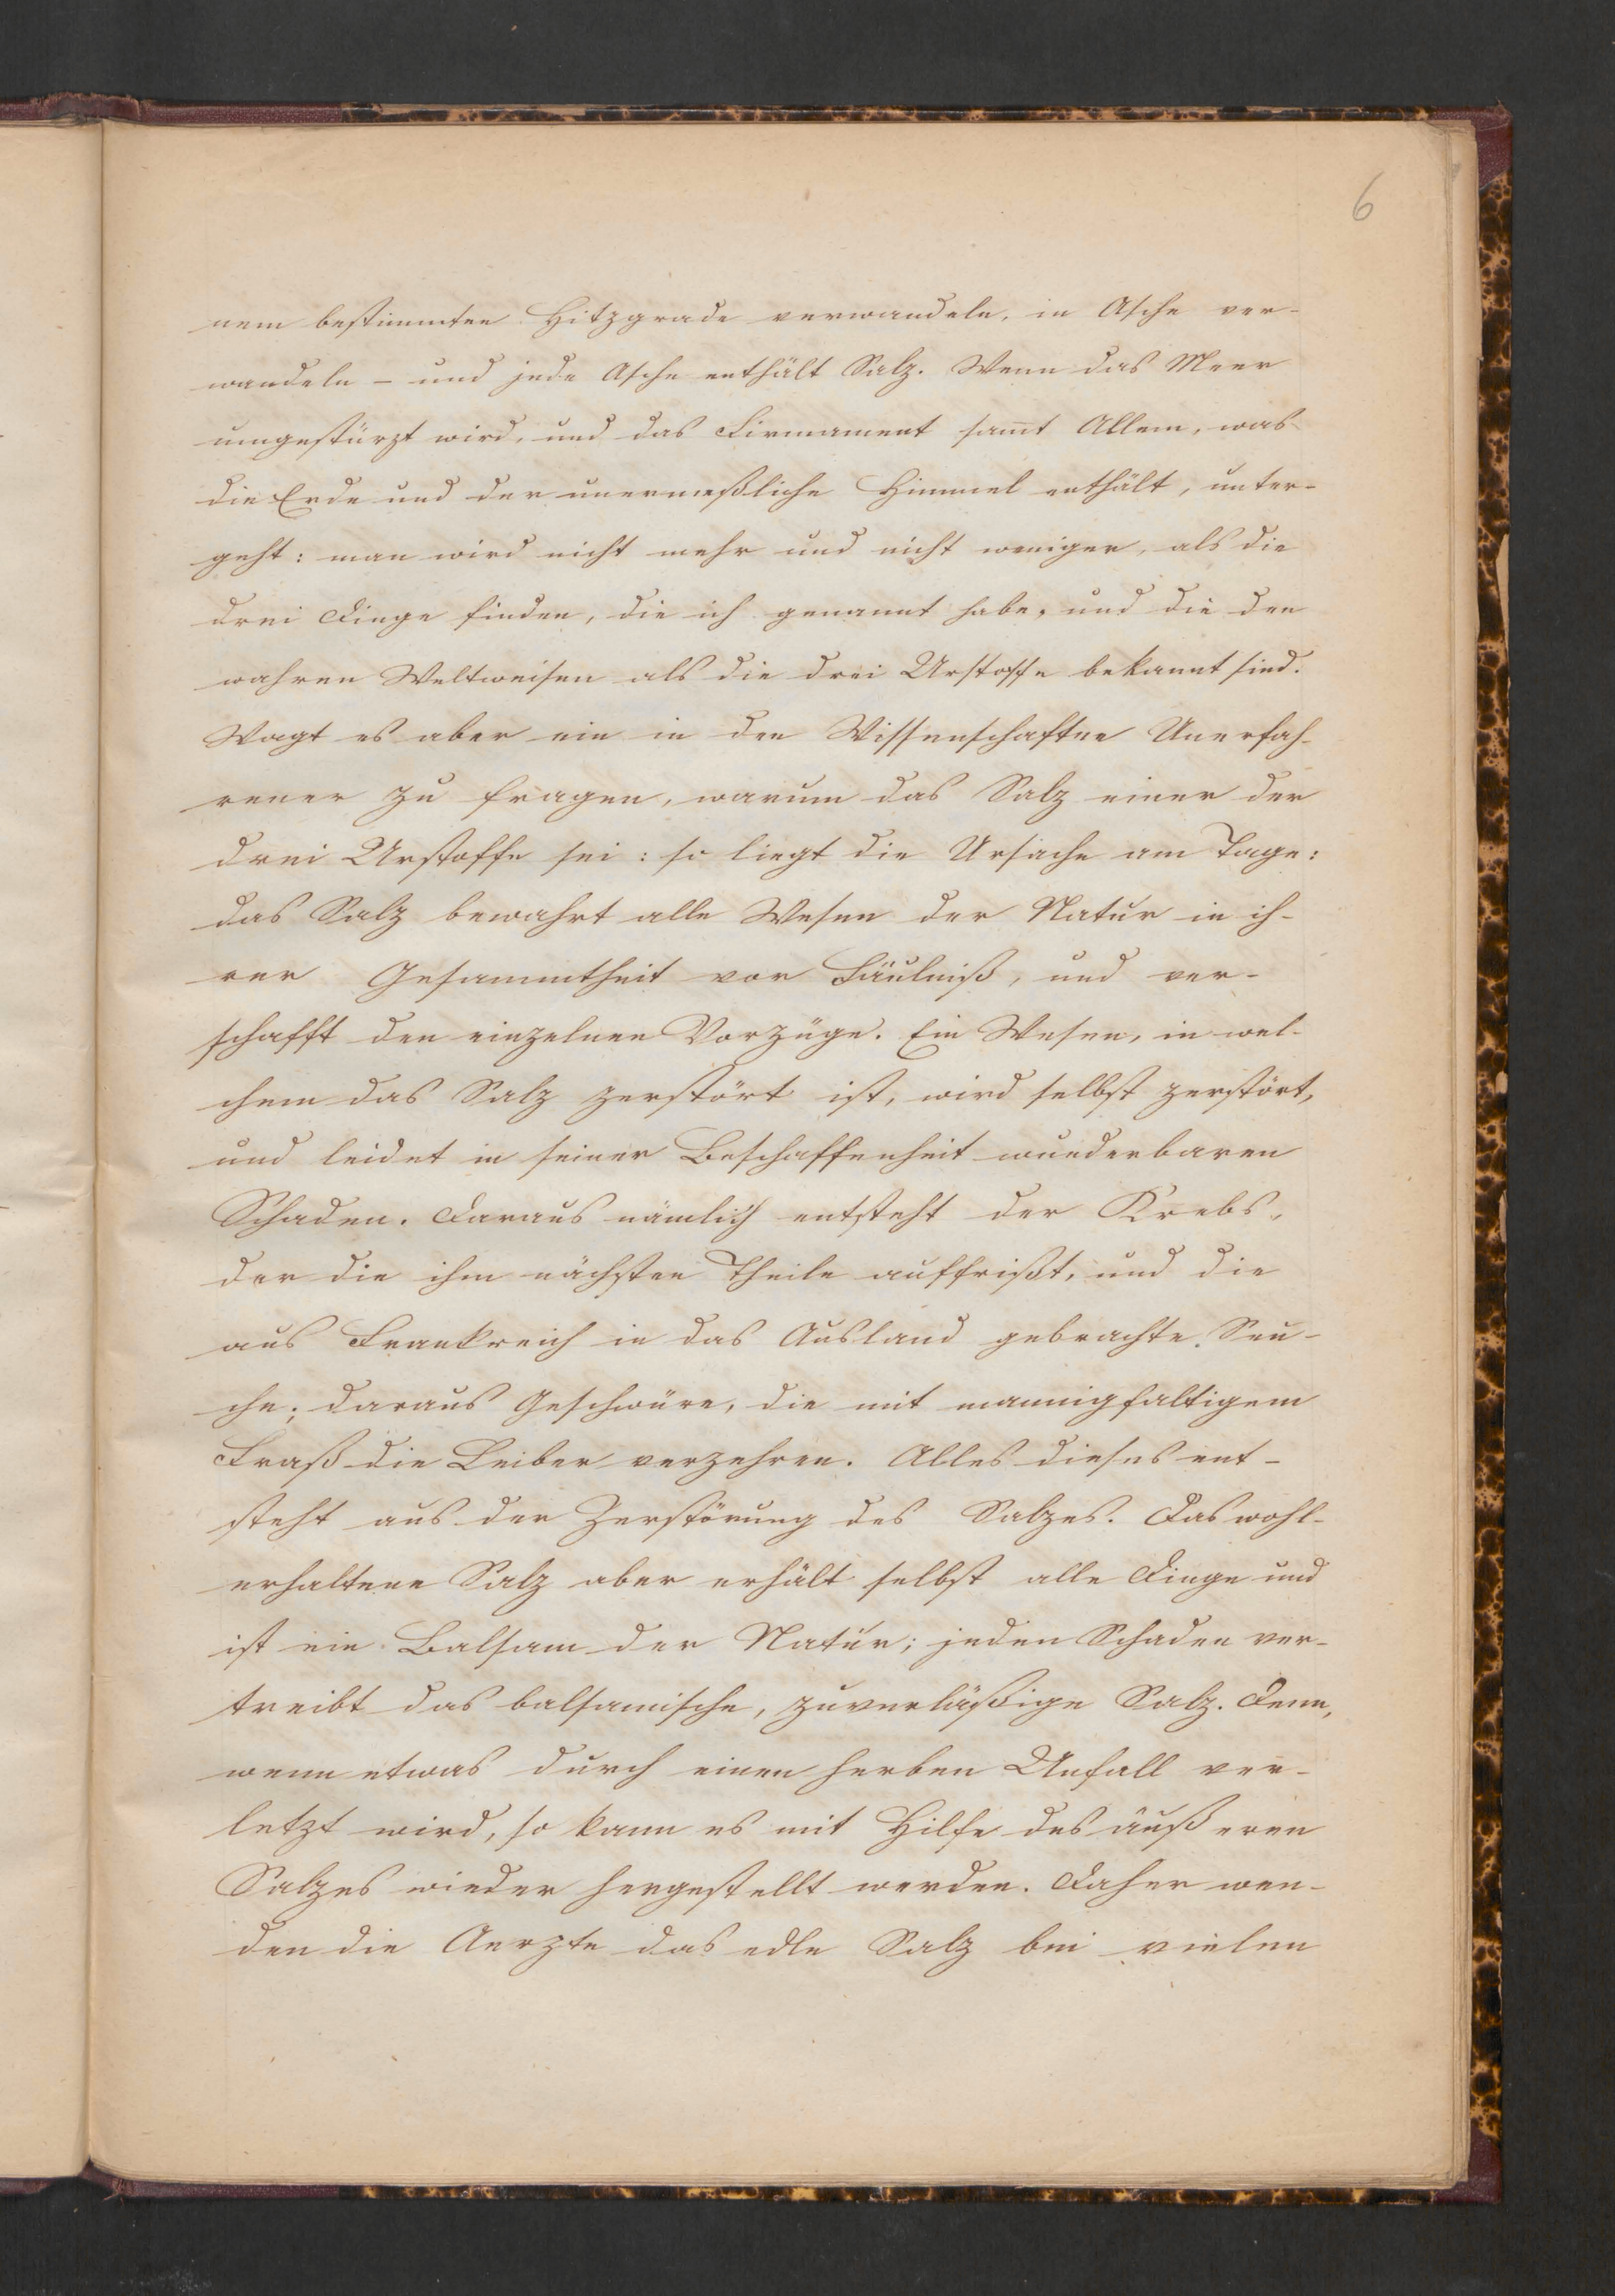 6
nem bestimmten Hitzgrade verwandeln, in Asche ver-
wandeln - und jede Asche enthält Salz. Wenn das Meer
umgestürzt wird, und das Firmament sam̄t Allem, was
die Erde und der unermeßliche Himmel enthält, unter-
geht: man wird nicht mehr und nicht weniger, als die
drei Dinge finden, die ich genannt habe, und die den
wahren Weltweisen als die drei Urstoffe bekannt sind.
Wagt es aber ein in den Wissenschaften Unerfah-
rener zu fragen, warum das Salz einer der
drei Urstoffe sei: so liegt die Ursache am Tage:
das Salz bewahrt alle Wesen der Natur in ih-
rer Gesammtheit vor Fäulniß, und ver-
schafft den einzelnen Vorzüge. Ein Wesen, in wel-
chem das Salz zerstört ist, wird selbst zerstört,
und leidet in seiner Beschaffenheit wunderbaren
Schaden. Daraus nämlich entsteht der Krebs,
der die ihm nächsten Theile auffrißt, und die
aus Frankreich in das Ausland gebrachte Seu-
che; daraus Geschwüre, die mit mannigfaltigem
Fraß die Leiber verzehren. Alles dieses ent-
steht aus der Zerstörung des Salzes. Das wohl-
erhaltene Salz aber erhält selbst alle Dinge und
ist ein Balsam der Natur; jeden Schaden ver-
treibt das balsamische, zuverläßige Salz. Denn,
wenn etwas durch einen herben Unfall ver-
letzt wird, so kann es mit Hilfe des äußeren
Salzes wieder hergestellt werden. Daher wen-
den die Aerzte das edle Salz bei vielen